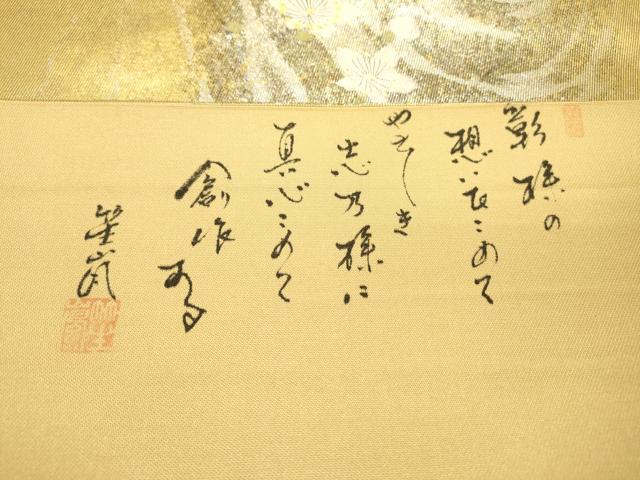 様の
想いをこめて
やさしき
志乃様に
真心こめて
創作する
笙嵐